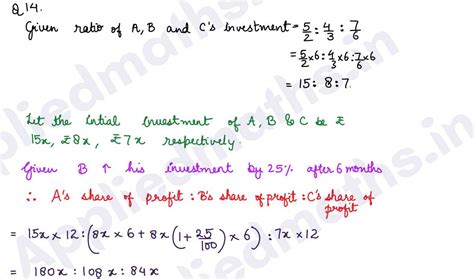 Q14.
Given ratio of A, B and C's investment = 5/2 : 4/3 : 7/6
= 5/2 × 6 : 4/3 × 6 : 7/6 × 6
= 15 : 8 : 7.
Let the Intial Investment of A, B & C be ₹
15x, ₹8x, ₹7x respectively.
Given B ↑ his investment by 25% after 6 months
∴ A's share of profit : B's share of profit : C's share of
profit
= 15x × 12 : (8x × 6 + 8x(1 + 25/100) × 6) : 7x × 12
= 180x : 108x : 84x
appliedmaths.in